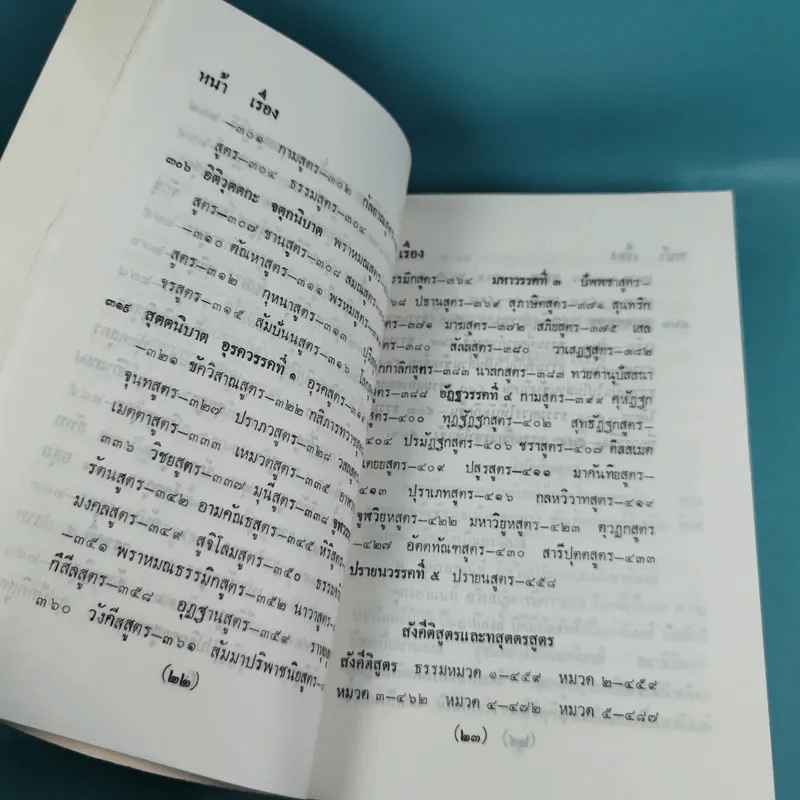 หน้า เรื่อง
—๓๐๑ กามสูตร—๓๐๒ กัลยาณสูตร
สูตร—๓๐๔ ธรรมสูตร—๓๐๔
๓๐๖ อิติวุตตกะ จตุกนิบาต พราหมณสูตร
สูตร—๓๐๗ ชานสูตร—๓๐๘ สมณสูตร
—๓๑๐ ตัณหาสูตร—๓๑๑ พรหมสูตร
สูตร—๓๑๒ กุหนาสูตร—๓๑๓
จรสูตร—๓๑๕ สัมปันนสูตร—๓๑๖
๓๑๙ สุตตนิบาต อุรควรรคที่ ๑ อุรคสูตร
—๓๒๑ ขัควิสาณสูตร—๓๒๒ กสิภารทวาชสูตร
จุนทสูตร—๓๒๗ ปราภวสูตร—๓๒๘
เมตตาสูตร—๓๓๓ เหมวตสูตร—๓๓๕
๓๓๖ วิชยสูตร—๓๓๗ มุนีสูตร—๓๓๘
รัตนสูตร—๓๔๒ อามคันธสูตร—๓๔๕ หิริสูตร
มงคลสูตร—๓๔๙ สูจิโลมสูตร—๓๕๐
—๓๕๑ พราหมณธรรมิกสูตร—๓๕๒ นาวาสูตร—
กึสีลสูตร—๓๕๘ อุฏฐานสูตร—๓๕๙
๓๖๐ วังคีสสูตร—๓๖๑ สัมมาปริพาชนิยสูตร—
(๒๒)
เรื่อง
รรมิกสูตร—๓๖๔ มหาวรรคที่ ๓ บัพพชาสูตร—
๖๘ ปธานสูตร—๓๖๙ สุภาษิตสูตร—๓๗๑ สุนทริก
—๓๗๑ มาฆสูตร—๓๗๒ สภิยสูตร—๓๗๕ เสล
—๓๘๐ สัลลสูตร—๓๘๐ วาเสฏฐสูตร—๓๘๒
กกาลิกสูตร—๓๘๓ นาลกสูตร—๓๘๓ ทวยตานุปัสสนา
—๓๘๘ อัฏฐวรรคที่ ๔ กามสูตร—๓๙๙ คุหัฏฐก
สูตร—๔๐๐ ทุฏฐัฏฐกสูตร—๔๐๒ สุทธัฏฐกสูตร
—๔๐๔ ปรมัฏฐกสูตร—๔๐๖ ชราสูตร—๔๐๗ ติสสเมต
เตยยสูตร—๔๐๙ ปสูรสูตร—๔๑๑ มาคันทิยสูตร—
๔๑๓ ปุราเภทสูตร—๔๑๖ กลหวิวาทสูตร—๔๑๙
จูฬวิยูหสูตร—๔๒๒ มหาวิยูหสูตร—๔๒๓ ตุวฏกสูตร
—๔๒๗ อัตตทัณฑสูตร—๔๓๐ สารีปุตตสูตร—๔๓๓
ปรายนวรรคที่ ๕ ปรายนสูตร—๔๕๘
สังคีติสูตรและทสุตตรสูตร
สังคีติสูตร ธรรมหมวด ๑—๔๕๙ หมวด ๒—๔๕๙
หมวด ๓—๔๖๒ หมวด ๔—๔๗๒ หมวด ๕—๔๘๗
(๒๓)